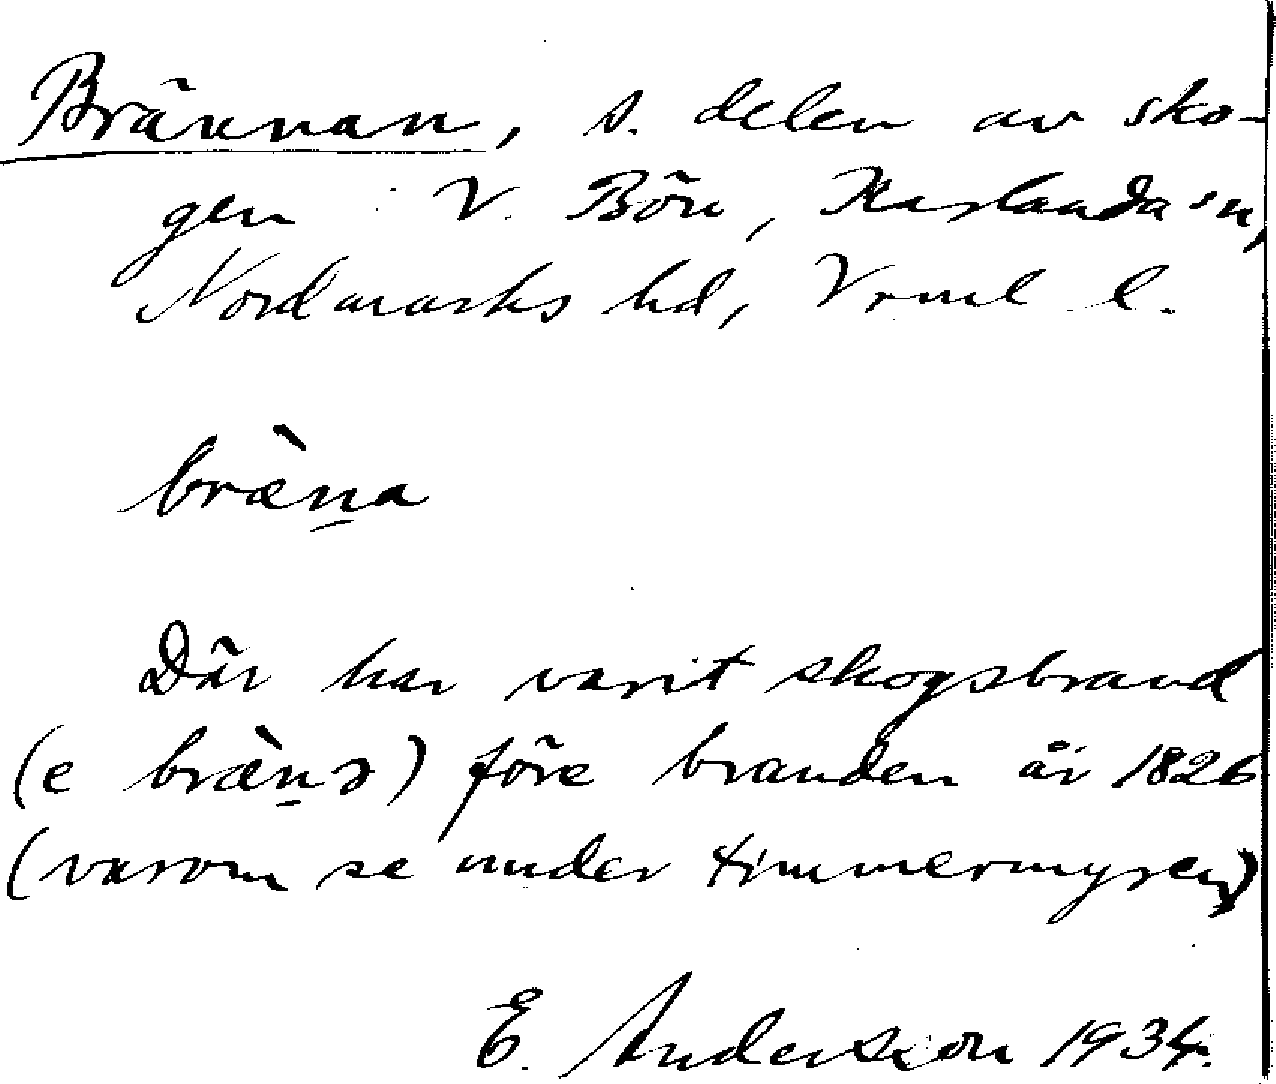 Brännan, s. delen av sko-
gen V. Bön, Karlanda sn,
Nordmarks hd, Vrml l.
bræ̀n̠a
Där har varit skogsbrand
(e bræ̀n̠ə) före branden år 1826
(varom se under timmermyren)
E. Andersson 1934.